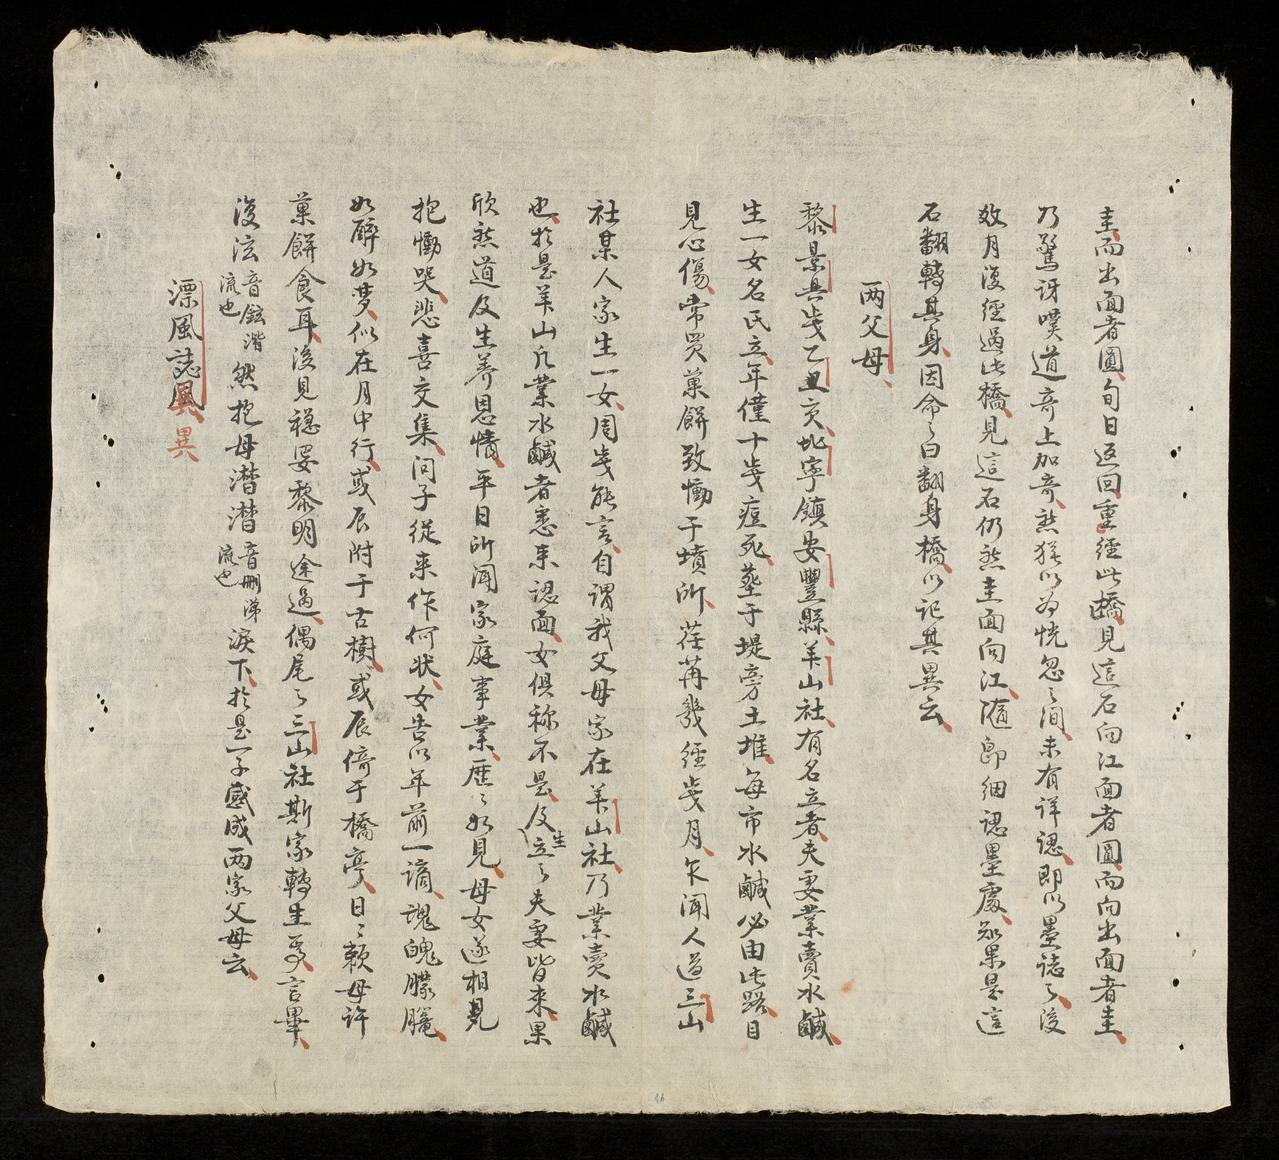 圭而出面者圓旬日返回重經此橋見這石向江面者圓而向出面者圭
乃驚訝嘆道奇上加奇然猶以為恍忽之間未有詳認即以墨誌之後
数月復經過此橋見這石仍然圭面向江隨即細認墨處知果是這
石翻轉其身因命之曰翻身橋以記其異云
两父母
黎景興歲乙丑亥北寧鎮安豐縣羊山社有名立者夫妻業賣水鹹
生一女名氏立年僅十歲痘死塟于堤旁土堆每市水鹹必由此路目
見心傷常買菓餅致慟于墳所荏苒幾經歲月乍聞人道三山
社某人家生一女周歲能言自謂我父母家在羊山社乃業賣水鹹
也於是羊山凡業水鹹者悉来認面女俱称不是及生立之夫妻皆来果
欣然道及生养恩情平日所闻家庭事業歷之如見母女遂相見
抱慟哭悲喜交集问子從来作何状女告以年前一謫魂魄朦朧
如醉如梦似在月中行或辰附于古樹或辰倚于橋亭日之賴母許
菓餅食耳後見穏婆黎明途過偶尾之三山社斯家轉生焉言畢
後泫音鉉流也潸然抱母潸潸音刪涕流也淚下於是一子感成两家父母云
漂風誌風異